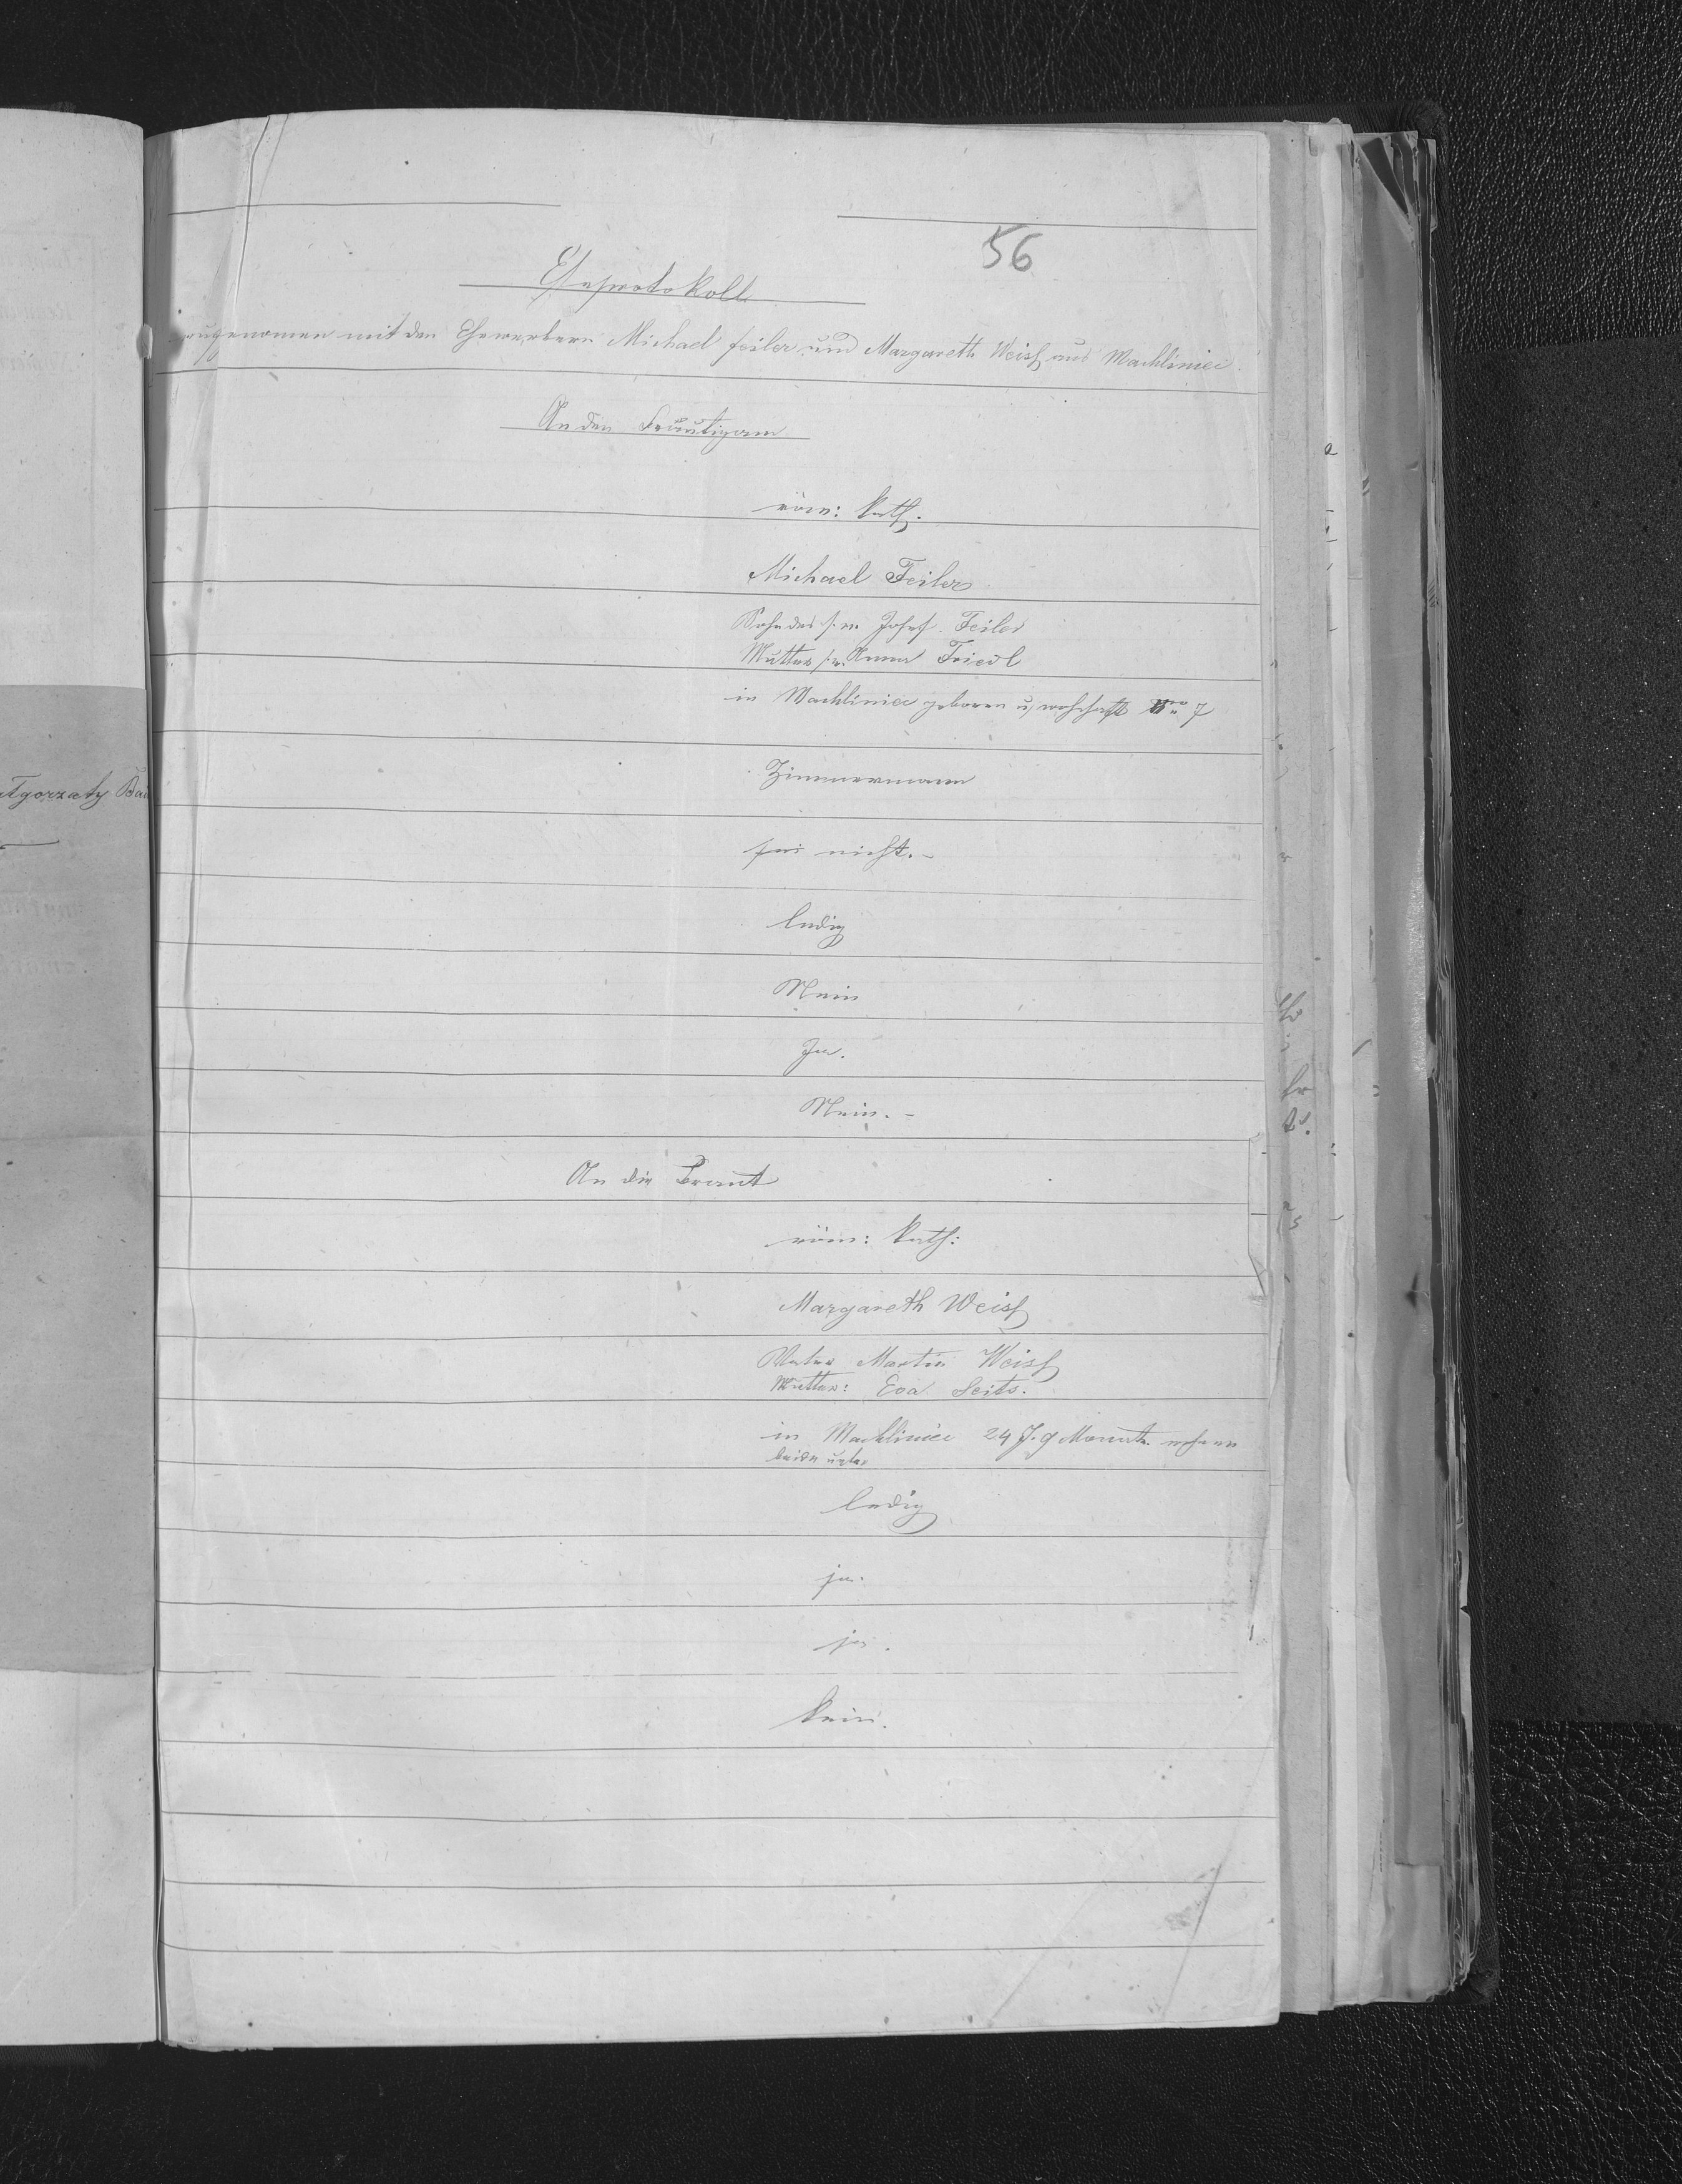 56
Eheprotokoll
aufgenomen mit den Ehewerbern Michael Feiler und Margareth Weiß aus Machliniec.
An den Bräutigam
röm: kath.
Michael Feiler
Sohn des Josef Feiler
Mutter Anna Friedl
in Machliniec geboren u. wohnhaft Nro 7
Zimmermann
nicht.-
ledig
Nein
Ja.
Nein.-
An die Braut
röm: kath:
Margareth Weiß
Vater Martin Weiß
Mutter: Eva Seits.
in Machliniec 24 J. 9 Monate
beide
ledig
ja.
ja.
kein.